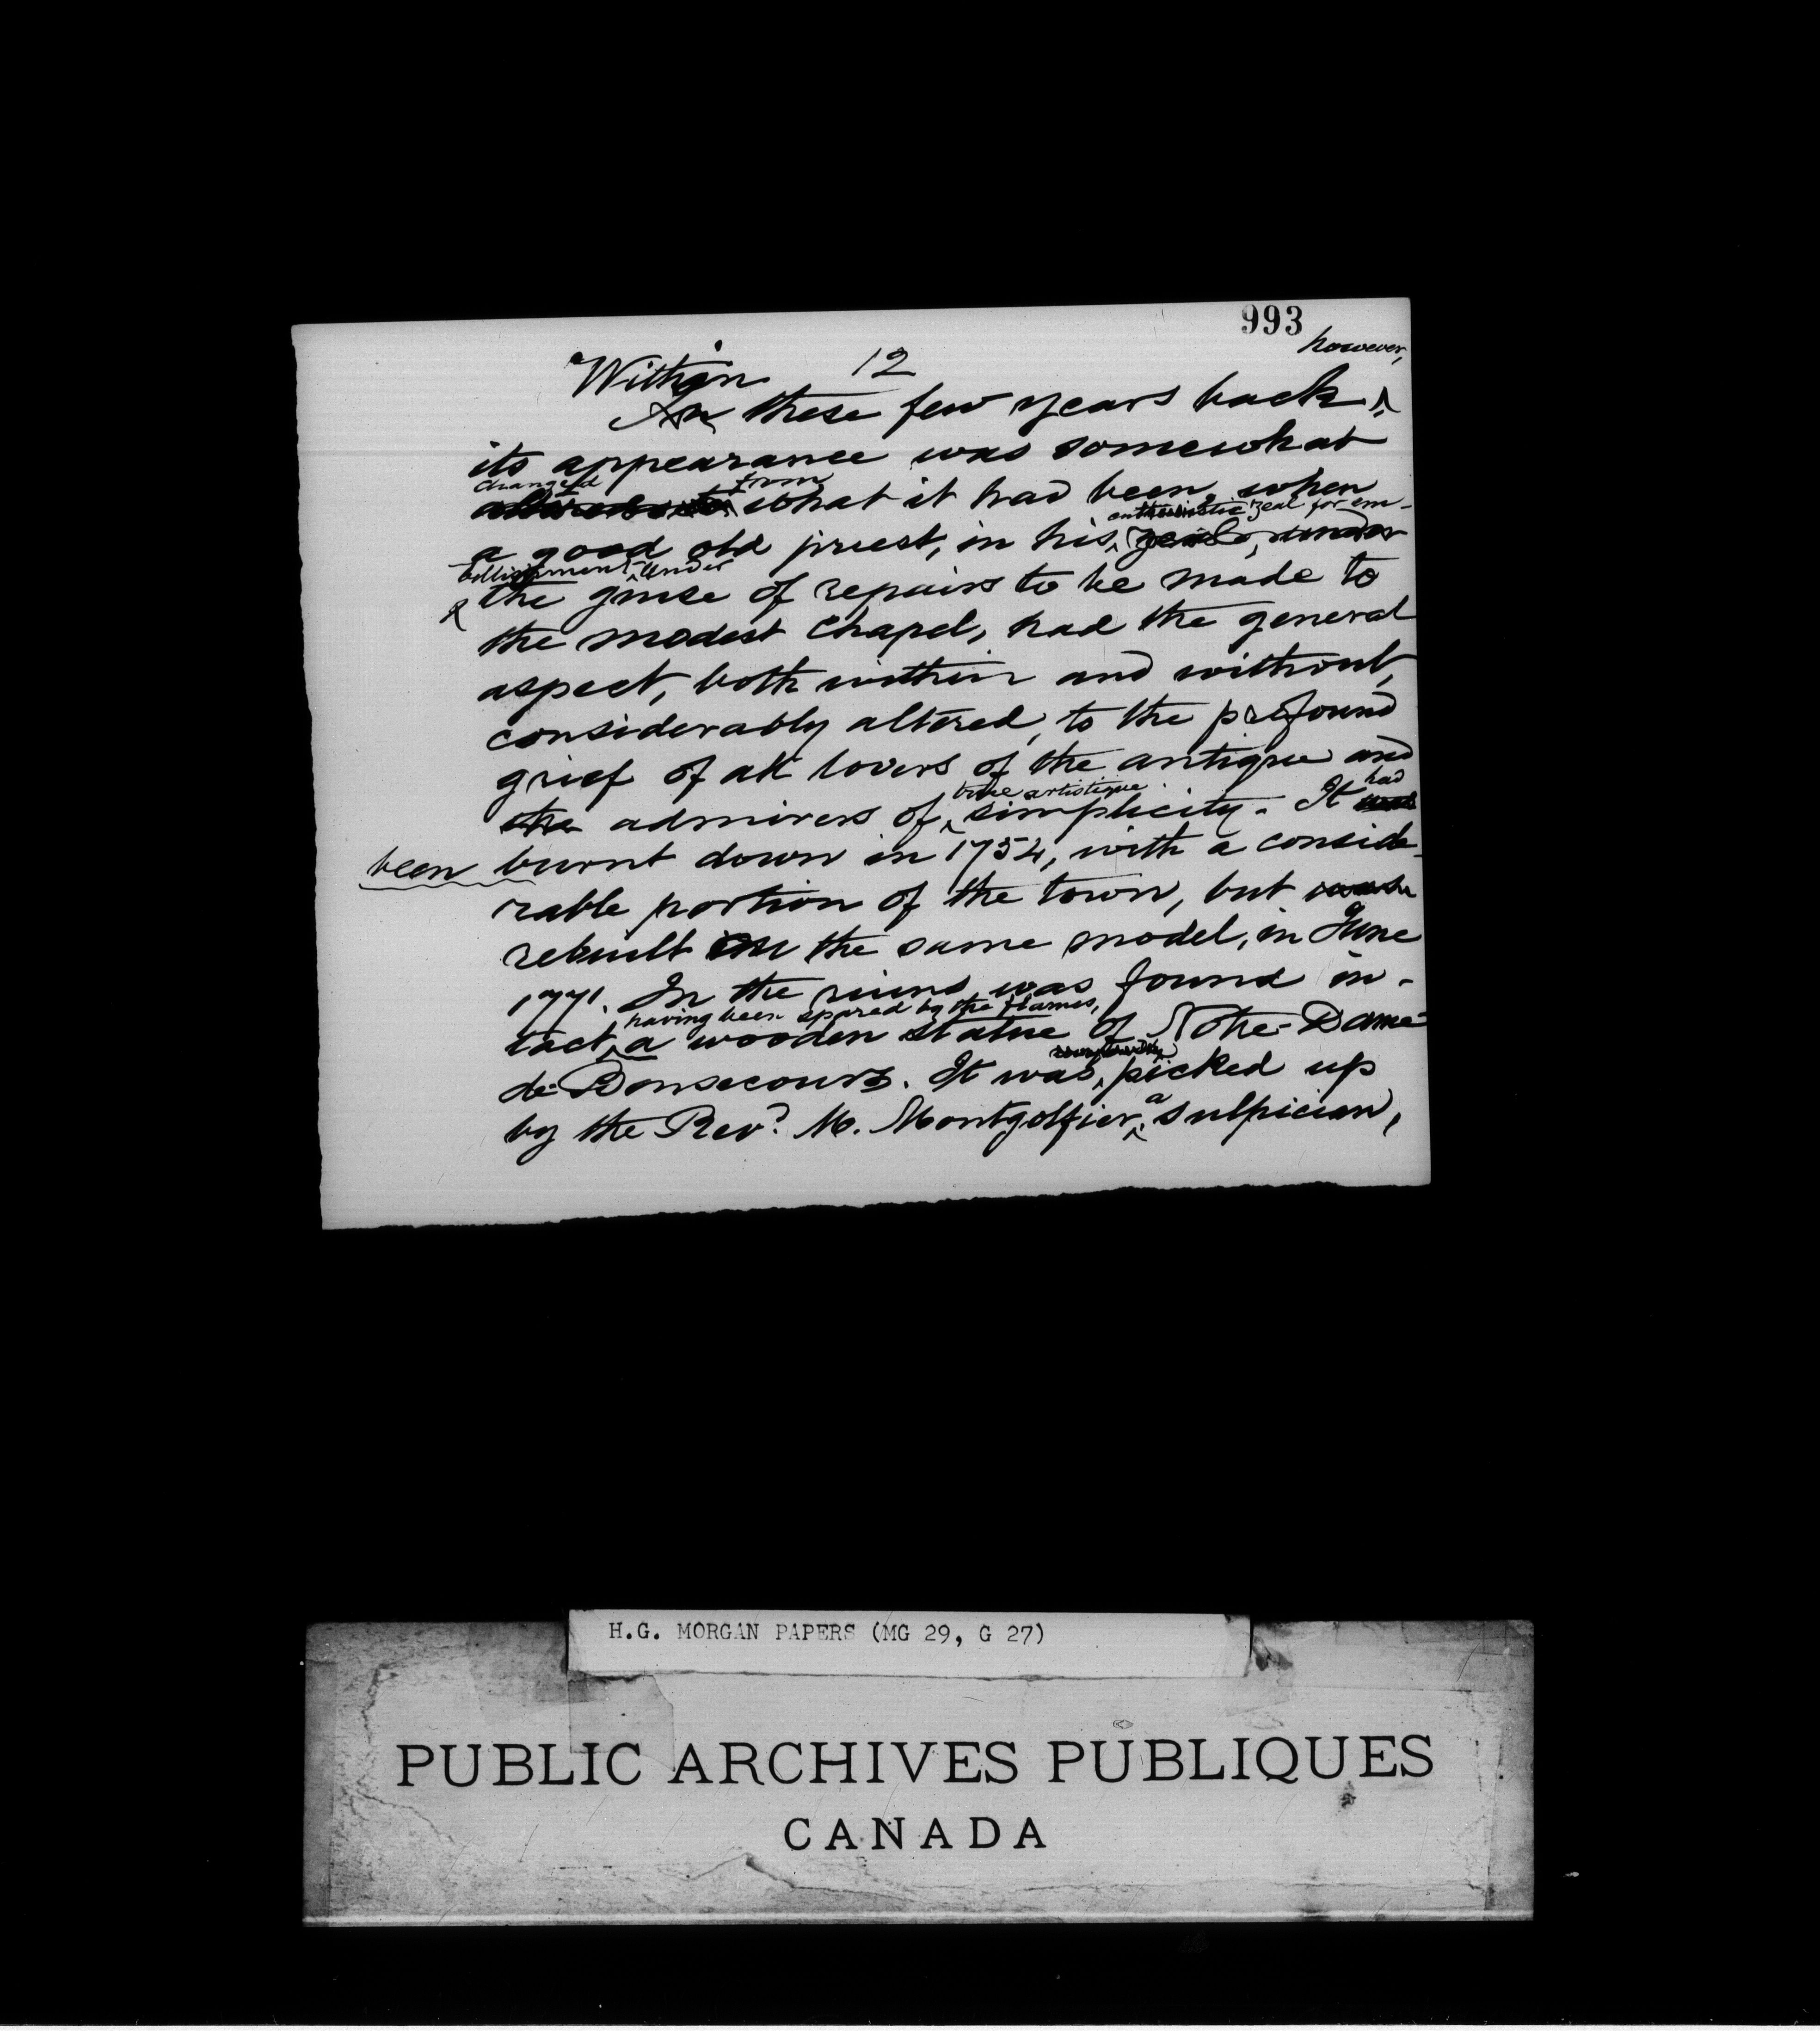 993
12
however,
Within
In these few years back,
its appearance was somewhat
changed from
altered to what it had been, when
enthusiastic zeal for em-
a good old priest, in his zeal, under
bellishment, under
the guise of repairs to be made to
the modest chapel, had the general
aspect, both within and without,
considerably altered, to the profound
grief of all lovers of the antique and
true artistique had
the admirers of simplicity. It was
been burnt down in 1754, with a conside-
rable portion of the town, but was
rebuilt on the same model, in June
1771. In the ruins was found in-
having been spared by the flames,
tact, a wooden statue of Notre-Dame-
de-Bonsecours. It was picked up
a
by the Revd. M. Montgolfier, sulpician,
H.G. MORGAN PAPERS (MG 29, G 27)
PUBLIC ARCHIVES PUBLIQUES
CANADA